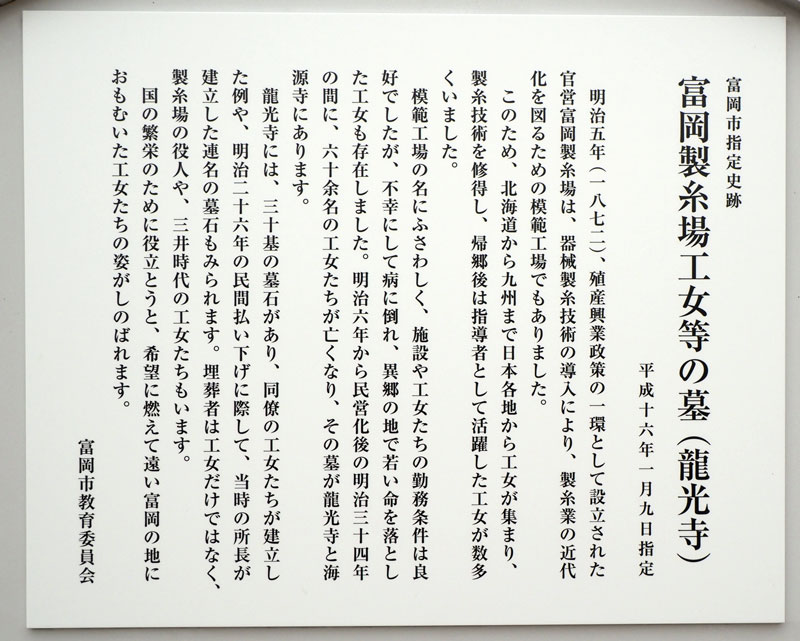 富岡市指定史跡
富岡製糸場工女等の墓（龍光寺）
平成十六年一月九日指定
明治五年（一八七二）、殖産興業政策の一環として設立された
官営富岡製糸場は、器械製糸技術の導入により、製糸業の近代
化を図るための模範工場でもありました。
このため、北海道から九州まで日本各地から工女が集まり、
製糸技術を修得し、帰郷後は指導者として活躍した工女が数多
くいました。
模範工場の名にふさわしく、施設や工女たちの勤務条件は良
好でしたが、不幸にして病に倒れ、異郷の地で若い命を落とし
た工女も存在しました。明治六年から民営化後の明治三十四年
の間に、六十余名の工女たちが亡くなり、その墓が龍光寺と海
源寺にあります。
龍光寺には、三十基の墓石があり、同僚の工女たちが建立し
た例や、明治二十六年の民間払い下げに際して、当時の所長が
建立した連名の墓石もみられます。埋葬者は工女だけではなく、
製糸場の役人や、三井時代の工女たちもいます。
国の繁栄のために役立とうと、希望に燃えて遠い富岡の地に
おもむいた工女たちの姿がしのばれます。
富岡市教育委員会